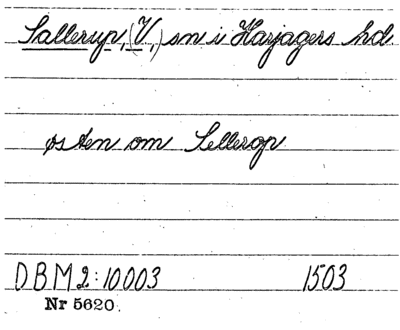 Sallerup, (V,) sn i Harjagers hd
østen om Sellerop
DBM 2:10003 1503
Nr 5620